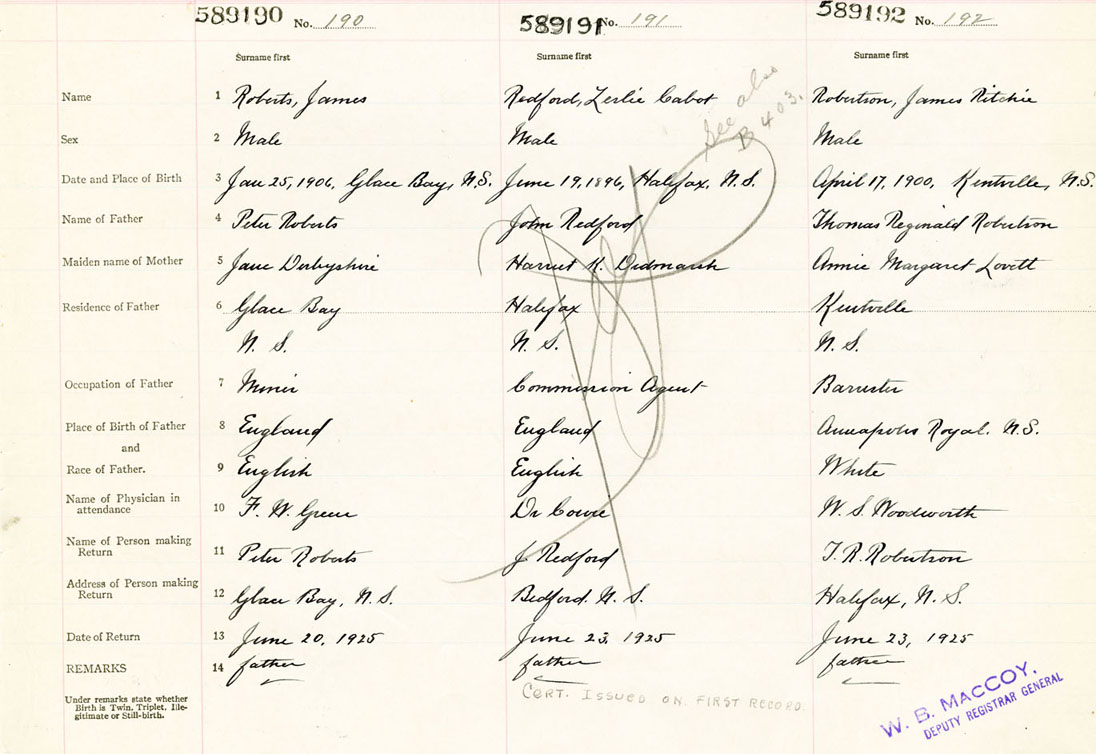 589190 No. 190 589191 No. 191 589192 No. 192
Surname first Surname first Surname first
See also
B 403.
Name 1 Roberts, James Redford, Leslie Cabot Robertson, James Ritchie
Sex 2 Male Male Male
Date and Place of Birth 3 Jan 25, 1906, Glace Bay, N.S. June 19, 1896, Halifax, N.S. April 17, 1900, Kentville, N.S.
Name of Father 4 Peter Roberts John Redford Thomas Reginald Robertson
Maiden name of Mother 5 Jane Derbyshire Harriet K. Didmarsh Annie Margaret Lovett
Residence of Father 6 Glace Bay Halifax Kentville
N. S. N. S. N. S.
Occupation of Father 7 Miner Commission Agent Barrister
Place of Birth of Father 8 England England Annapolis Royal. N.S.
and
Race of Father. 9 English English White
Name of Physician in
attendance 10 F. W. Green Dr Cowie W. S. Woodworth
Name of Person making
Return 11 Peter Roberts J. Redford T. R. Robertson
Address of Person making
Return 12 Glace Bay, N.S. Bedford. N.S. Halifax, N.S.
Date of Return 13 June 20, 1925 June 23, 1925 June 23, 1925
REMARKS 14 father father father
Under remarks state whether
Birth is Twin, Triplet, Ille-
gitimate or Still-birth.
CERT. ISSUED ON FIRST RECORD.
W. B. MACCOY.
DEPUTY REGISTRAR GENERAL